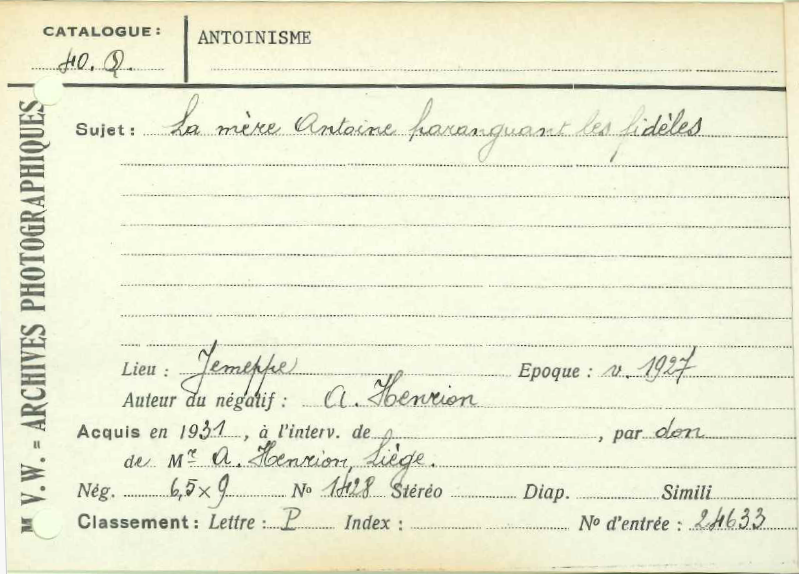 CATALOGUE:
40. Q.
ANTOINISME
Mr V.W. = ARCHIVES PHOTOGRAPHIQUES
Sujet : La mère Antoine haranguant les fidèles
Lieu : Jemeppe Epoque : v. 1927
Auteur du négatif : A. Henrion
Acquis en 1931, à l'interv. de , par don
de Mr A. Henrion, Liège.
Nég. 6,5 x 9 No 1428 Stéréo Diap. Simili
Classement : Lettre : P Index : No d'entrée : 24633